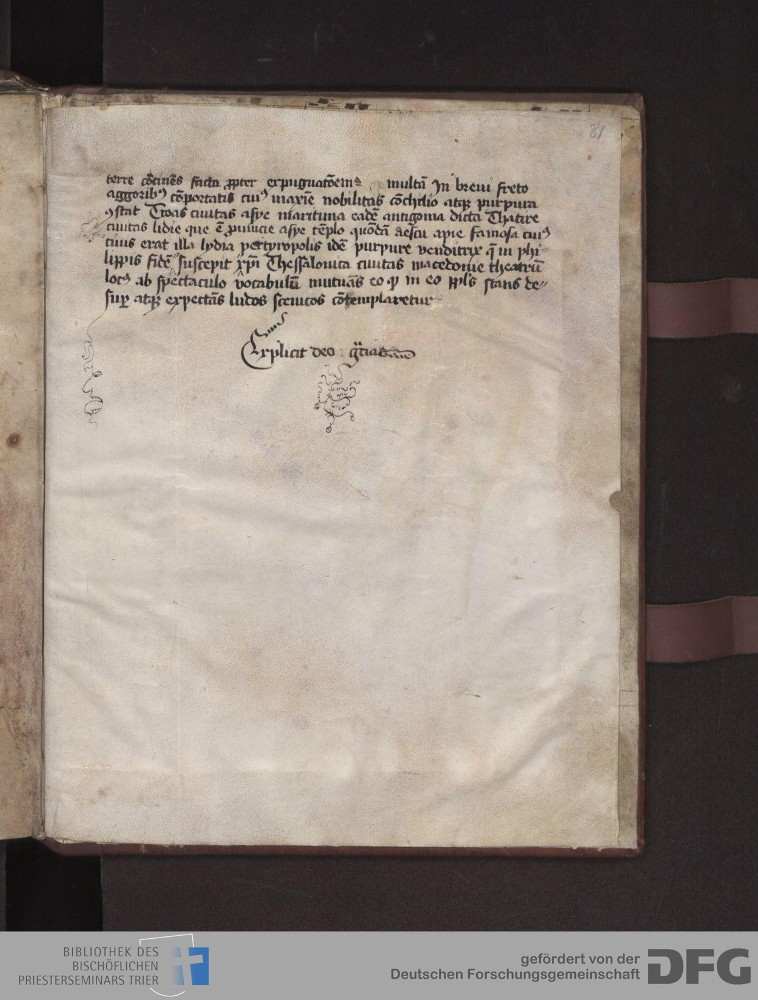 81
terre cōtinēs facta ꝓpter expugnatōem multū In breui freto
aggeribꝫ cōportatis cuiꝰ maxīe nobilitas cōchilio atqꝫ purpura
ꝯstat Troas ciuitas asye maritima eadē antigonia dicta Thatire
ciuitas lidie que ē ꝓuincie asye tēplo quōdā famosa cuiꝰ
ciuis erat illa lydia idē purpure venditrix q̄ in phi
lippis fidē suscepit xp̄i Thessalonica ciuitas macedonie theatrū
locꝰ ab spectaculo vocabulū mutuās eo ꝙ in eo ppl̄s stans de⸗
suꝑ atqꝫ expectās ludos scenicos cōtemplaretur
Explicit deo gr̄cias
BIBLIOTHEK DES
BISCHÖFLICHEN
PRIESTERSEMINARS TRIER
gefördert von der
Deutschen Forschungsgemeinschaft
DFG